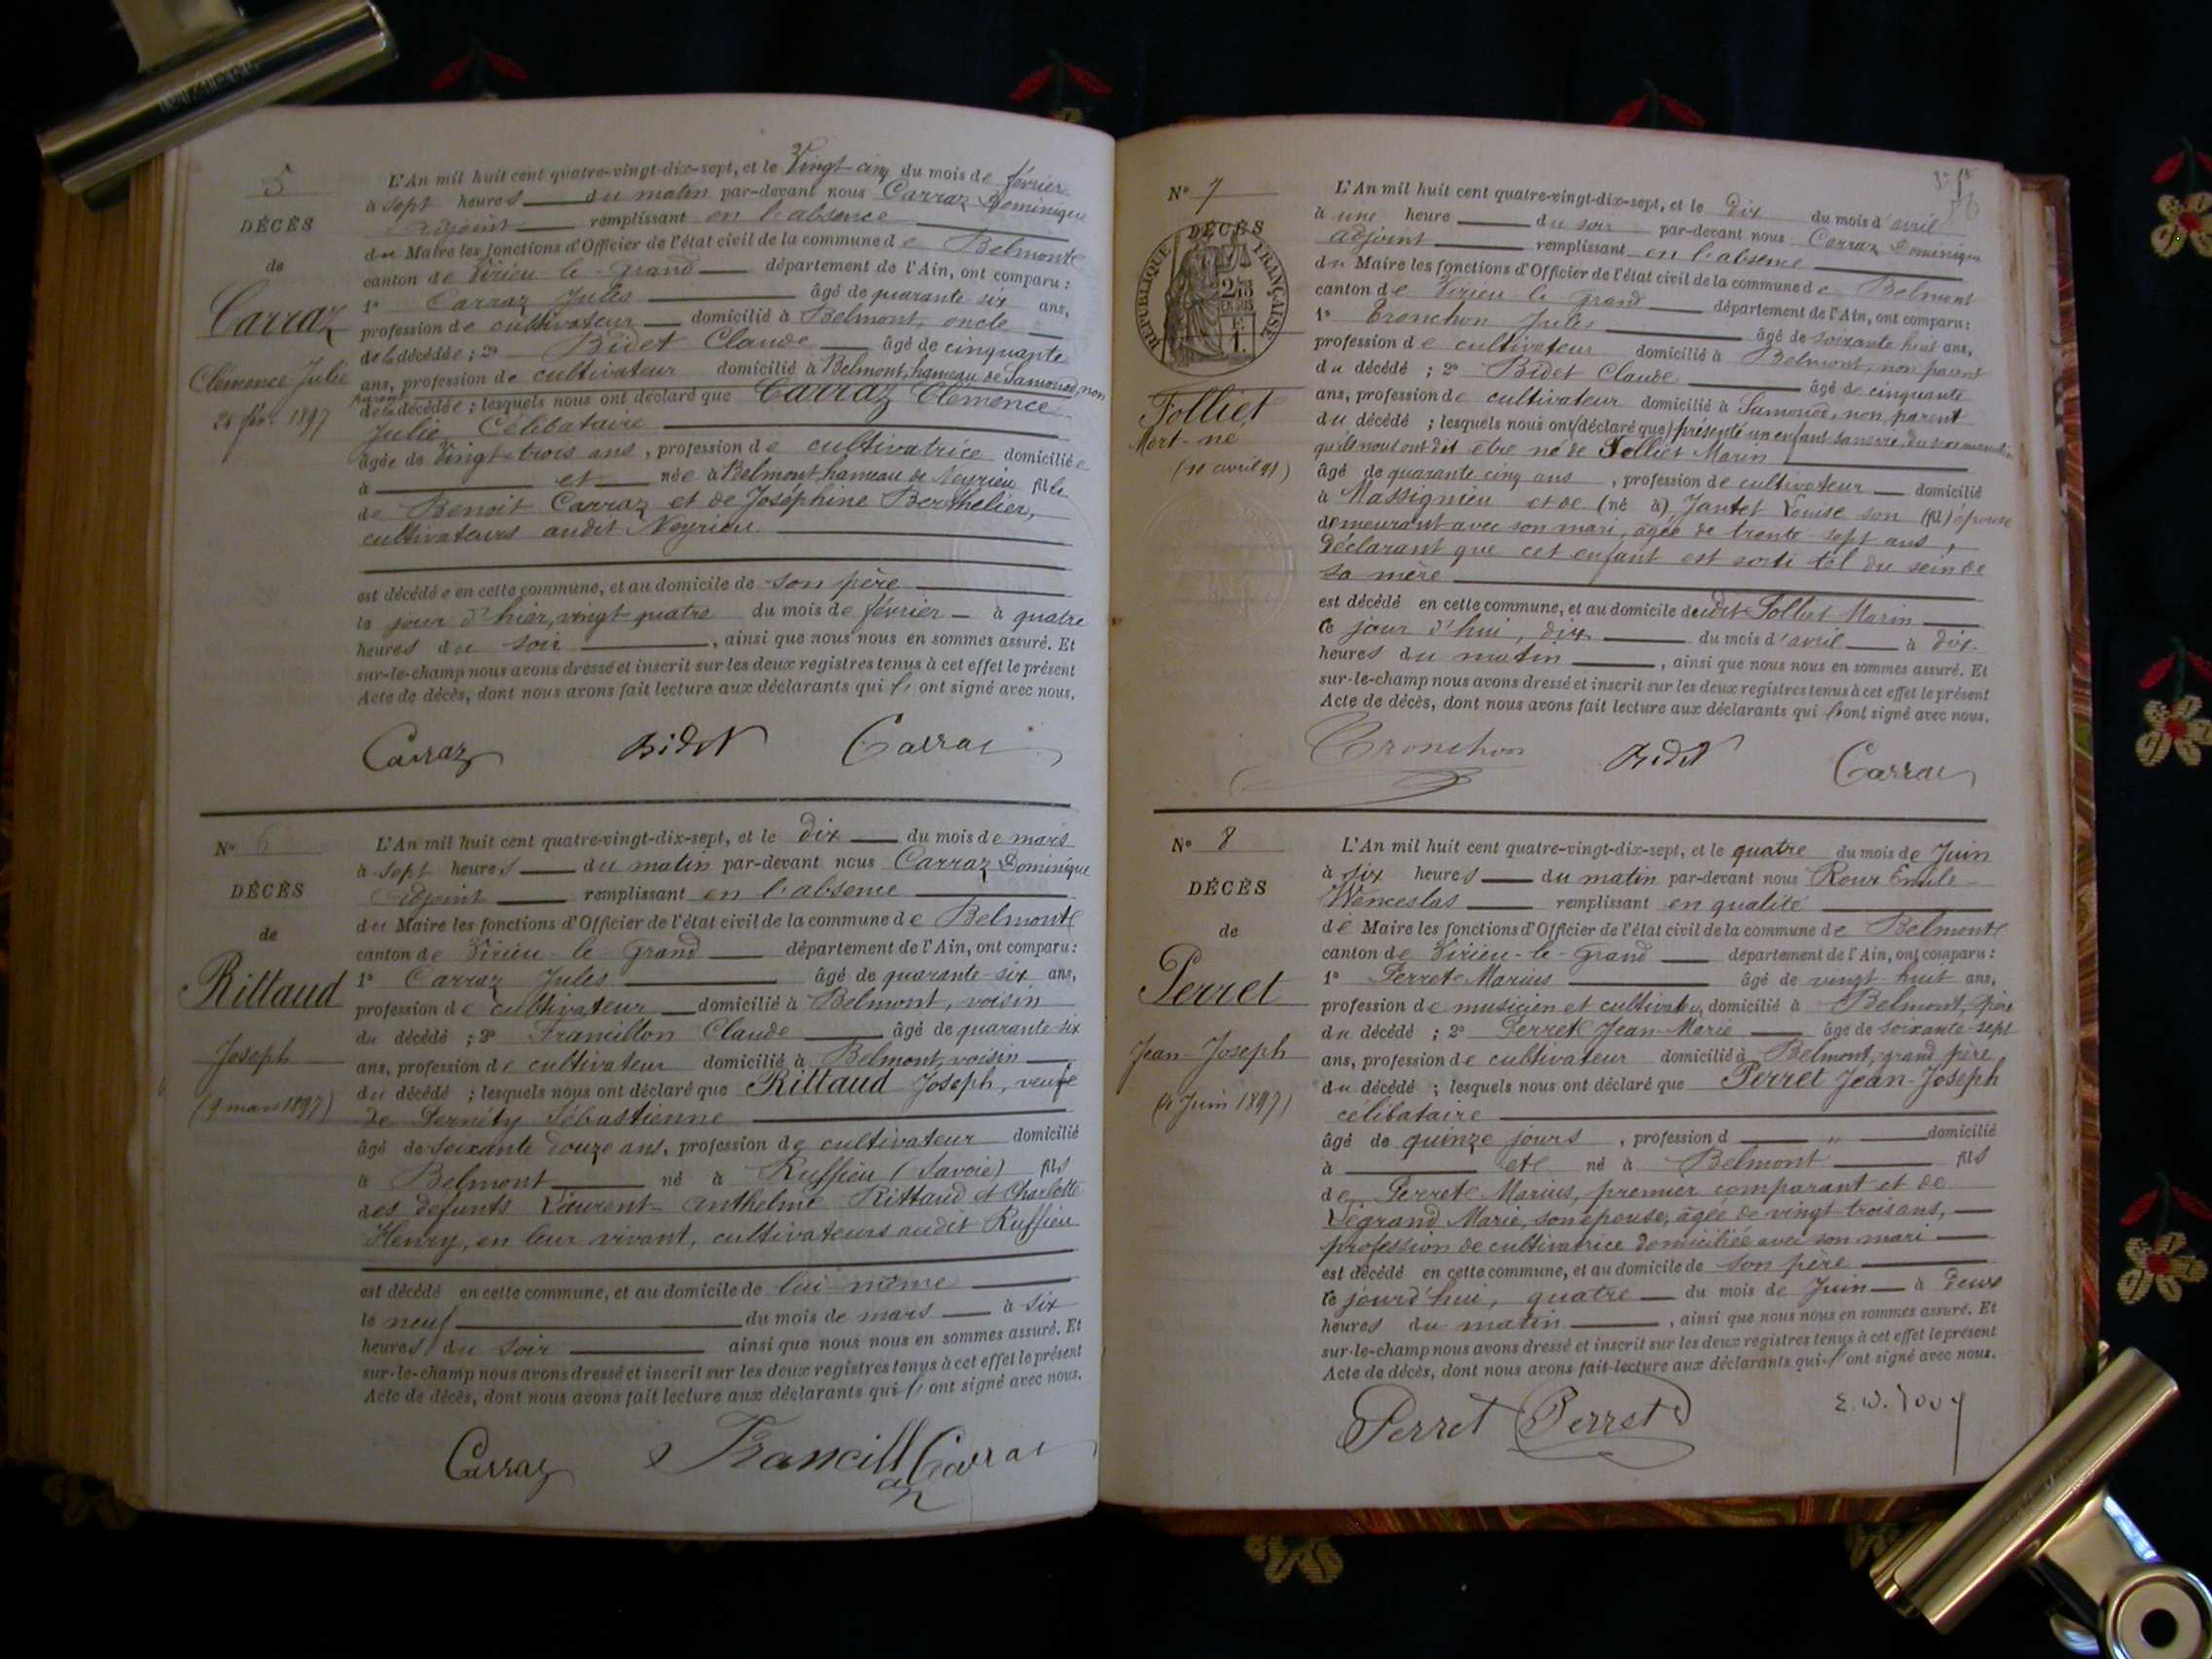 5
DÉCÈS
de
Carraz
Clémence Julie
24 fév. 1897
L'An mil huit cent quatre-vingt-dix-sept, et le Vingt-cinq du mois de février
à sept heures du matin par-devant nous Carraz Dominique
adjoint remplissant en l'absence
du Maire les fonctions d'Officier de l'état civil de la commune de Belmont
canton de Virieu-le-Grand département de l'Ain, ont comparu :
1° Carraz Jules âgé de quarante six ans,
profession de cultivateur domicilié à Belmont, oncle
de la décédée ; 2° Bidet Claude âgé de cinquante
ans, profession de cultivateur domicilié à Belmont, hameau de Samonod, non
parent
de la décédée ; lesquels nous ont déclaré que Carraz Clémence
Julie Célibataire
âgée de Vingt-trois ans, profession de cultivatrice domiciliée
à et née à Belmont, hameau de Neyrieu fille
de Benoit Carraz et de Joséphine Berthelier,
cultivateurs audit Neyrieu.
est décédée en cette commune, et au domicile de son père
le jour d'hier, vingt-quatre du mois de février à quatre
heures du soir, ainsi que nous nous en sommes assuré. Et
sur-le-champ nous avons dressé et inscrit sur les deux registres tenus à cet effet le présent
Acte de décès, dont nous avons fait lecture aux déclarants qui l' ont signé avec nous.
Carraz Bidet Carraz
N° 6
DÉCÈS
de
Rittaud
Joseph
(9 mars 1897)
L'An mil huit cent quatre-vingt-dix-sept, et le dix du mois de mars
à sept heures du matin par-devant nous Carraz Dominique
adjoint remplissant en l'absence
du Maire les fonctions d'Officier de l'état civil de la commune de Belmont
canton de Virieu-le-Grand département de l'Ain, ont comparu :
1° Carraz Jules âgé de quarante-six ans,
profession de cultivateur domicilié à Belmont, voisin
du décédé ; 2° Francillon Claude âgé de quarante six
ans, profession de cultivateur domicilié à Belmont, voisin
du décédé ; lesquels nous ont déclaré que Rittaud Joseph, veuf
de Sébastienne
âgé de soixante douze ans, profession de cultivateur domicilié
à Belmont né à Ruffieu (Savoie) fils
des défunts Laurent-Anthelme Rittaud et Charlotte
Henry, en leur vivant, cultivateurs audit Ruffieu
est décédé en cette commune, et au domicile de lui-même
le neuf du mois de mars à six
heures du soir ainsi que nous nous en sommes assuré. Et
sur-le-champ nous avons dressé et inscrit sur les deux registres tenus à cet effet le présent
Acte de décès, dont nous avons fait lecture aux déclarants qui l' ont signé avec nous.
Carraz Francillon Carraz
N° 7
DÉCÈS
RÉPUBLIQUE FRANÇAISE
Folliet
Mort-né
(10 avril 97)
L'An mil huit cent quatre-vingt-dix-sept, et le dix du mois d'avril
à une heure du soir par-devant nous Carraz Dominique
adjoint remplissant en l'absence
du Maire les fonctions d'Officier de l'état civil de la commune de Belmont
canton de Virieu-le-Grand département de l'Ain, ont comparu :
1° Tronchon Jules âgé de soixante huit ans,
profession de cultivateur domicilié à Belmont, non parent
du décédé ; 2° Bidet Claude âgé de cinquante
ans, profession de cultivateur domicilié à Samonod, non parent
du décédé ; lesquels nous ont (déclaré que) présenté un enfant sans vie, du sexe masculin
qu'ils nous ont dit être né de Folliet Marin
âgé de quarante cinq ans, profession de cultivateur domicilié
à Massignieu et de (né à) Jantet Louise son (fil) épouse
demeurant avec son mari, âgée de trente-sept ans,
déclarant que cet enfant est sorti tel du sein de
sa mère
est décédé en cette commune, et au domicile dudit Folliet Marin
ce jour d'hui, dix du mois d'avril à dix
heures du matin, ainsi que nous nous en sommes assuré. Et
sur-le-champ nous avons dressé et inscrit sur les deux registres tenus à cet effet le présent
Acte de décès, dont nous avons fait lecture aux déclarants qui l'ont signé avec nous.
Tronchon Bidet Carraz
N° 8
DÉCÈS
de
Perret
Jean-Joseph
(4 Juin 1897)
L'An mil huit cent quatre-vingt-dix-sept, et le quatre du mois de Juin
à six heures du matin par-devant nous Roux Emile
Wenceslas remplissant en qualité
de Maire les fonctions d'Officier de l'état civil de la commune de Belmont
canton de Virieu-le-Grand département de l'Ain, ont comparu :
1° Perret Marius âgé de vingt-huit ans,
profession de musicien et cultivateur, domicilié à Belmont, père
du décédé ; 2° Perret Jean-Marie âgé de soixante-sept
ans, profession de cultivateur domicilié à Belmont, grand père
du décédé ; lesquels nous ont déclaré que Perret Jean-Joseph
célibataire
âgé de quinze jours, profession d " domicilié
à et né à Belmont fils
de Perret Marius, premier comparant et de
Légrand Marie, son épouse, âgée de vingt-trois ans,
profession de cultivatrice domiciliée avec son mari
est décédé en cette commune, et au domicile de son père
ce jourd'hui, quatre du mois de Juin à deux
heures du matin, ainsi que nous nous en sommes assuré. Et
sur-le-champ nous avons dressé et inscrit sur les deux registres tenus à cet effet le présent
Acte de décès, dont nous avons fait lecture aux déclarants qui l' ont signé avec nous.
Perret Perret E. W. Roux